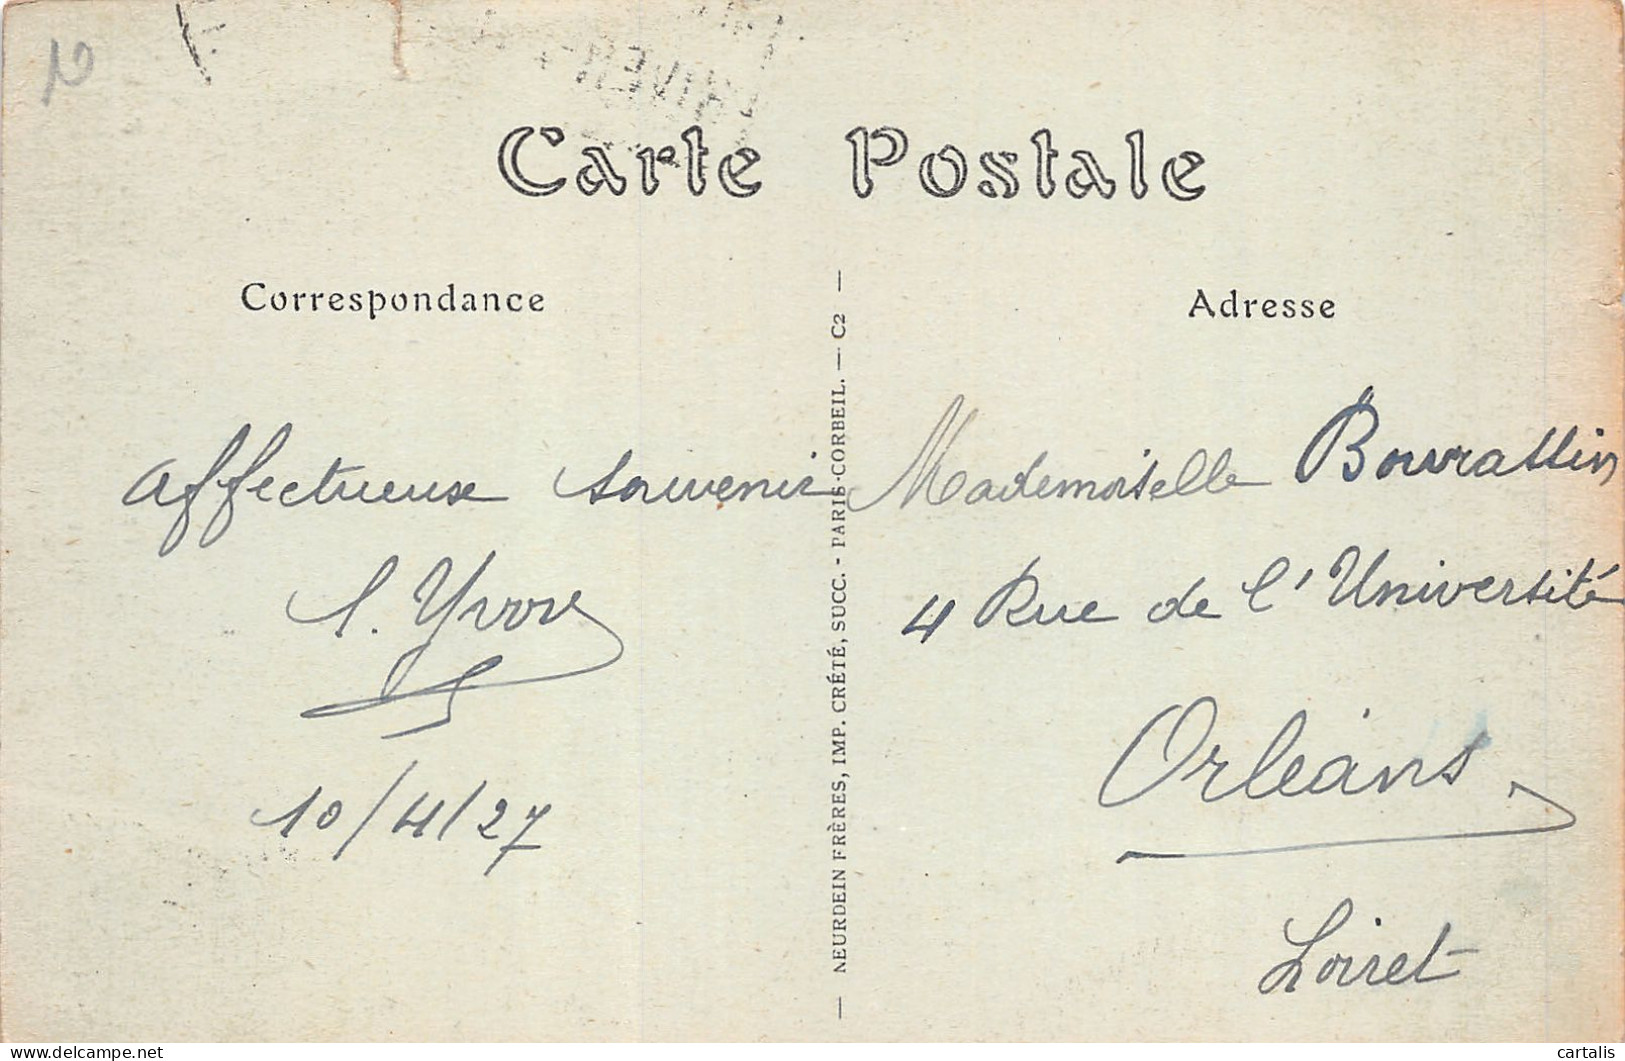 10
Carte Postale
Correspondance
Adresse
Affectueux souvenir
10/4/27
NEURDEIN FRÈRES, IMP. CRÉTÉ, SUCC. - PARIS-CORBEIL. — C2 —
Mademoiselle Bourassin
4 Rue de l'Université
Orléans
Loiret
cartalis